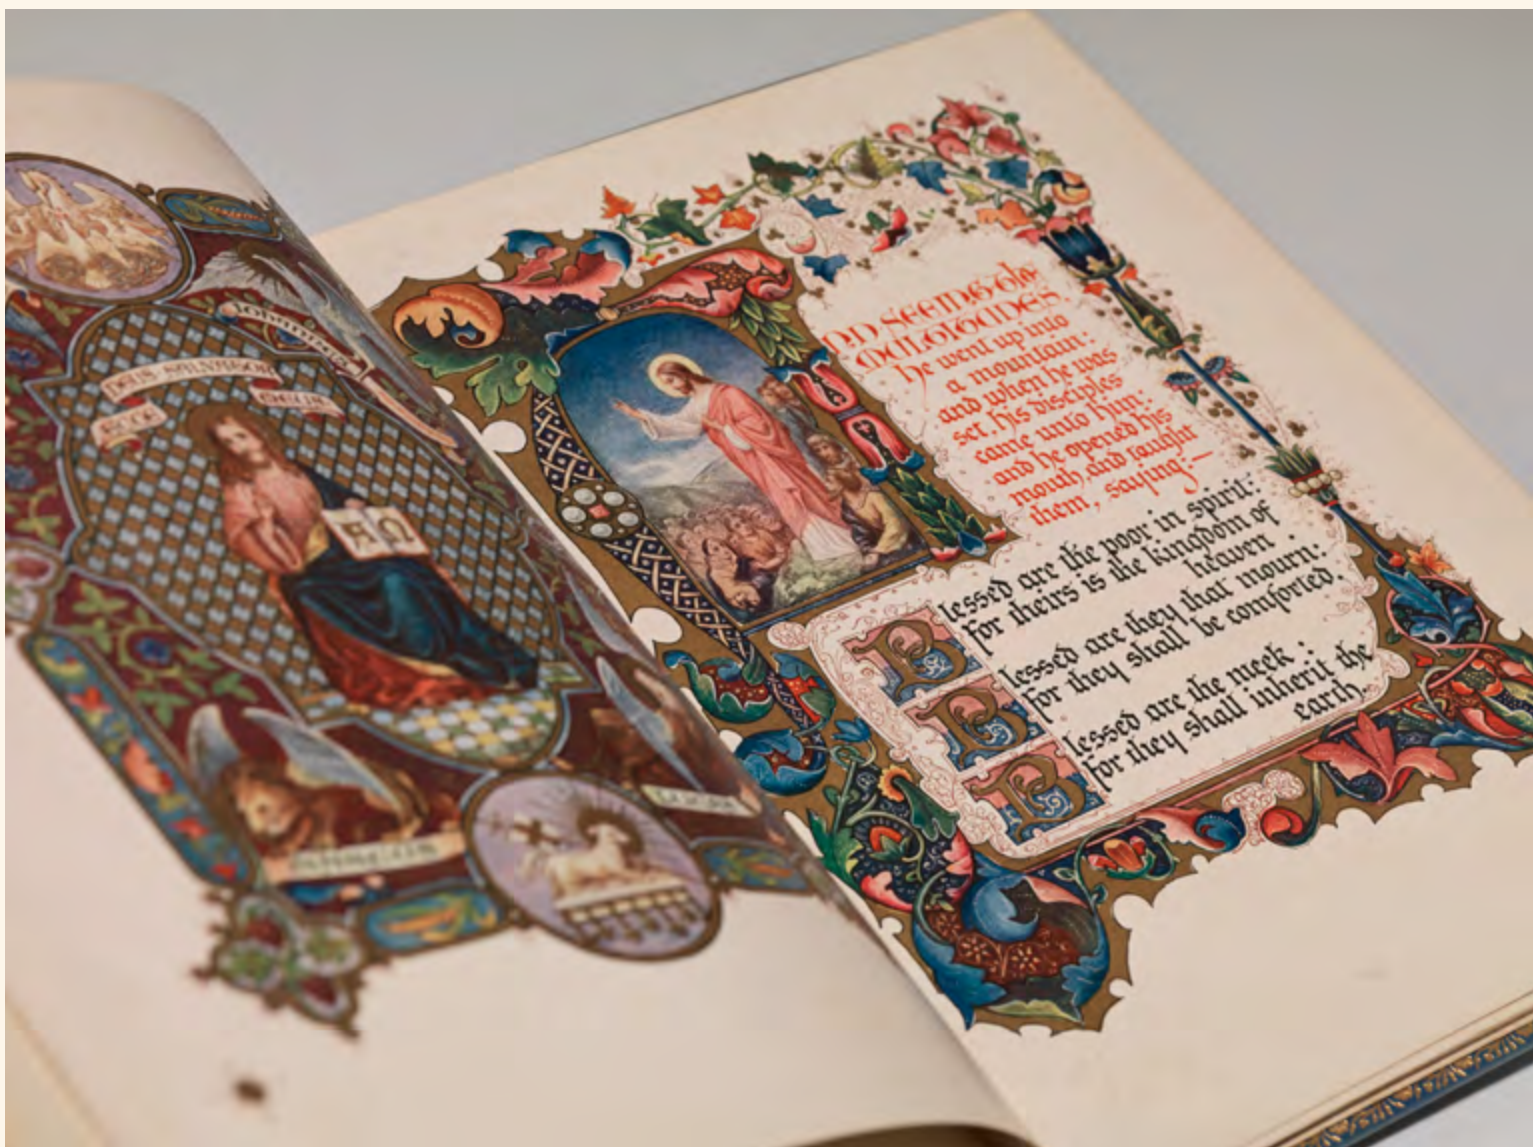 ECCE
DEUS SALVATOR
MEUS
Johannes
A Ω
AND SEEING the
MULTITUDES,
he went up into
a mountain:
and when he was
set, his disciples
came unto him:
and he opened his
mouth, and taught
them, saying:—
Blessed are the poor in spirit:
for theirs is the kingdom of
heaven
Blessed are they that mourn:
for they shall be comforted.
Blessed are the meek:
for they shall inherit the
earth.